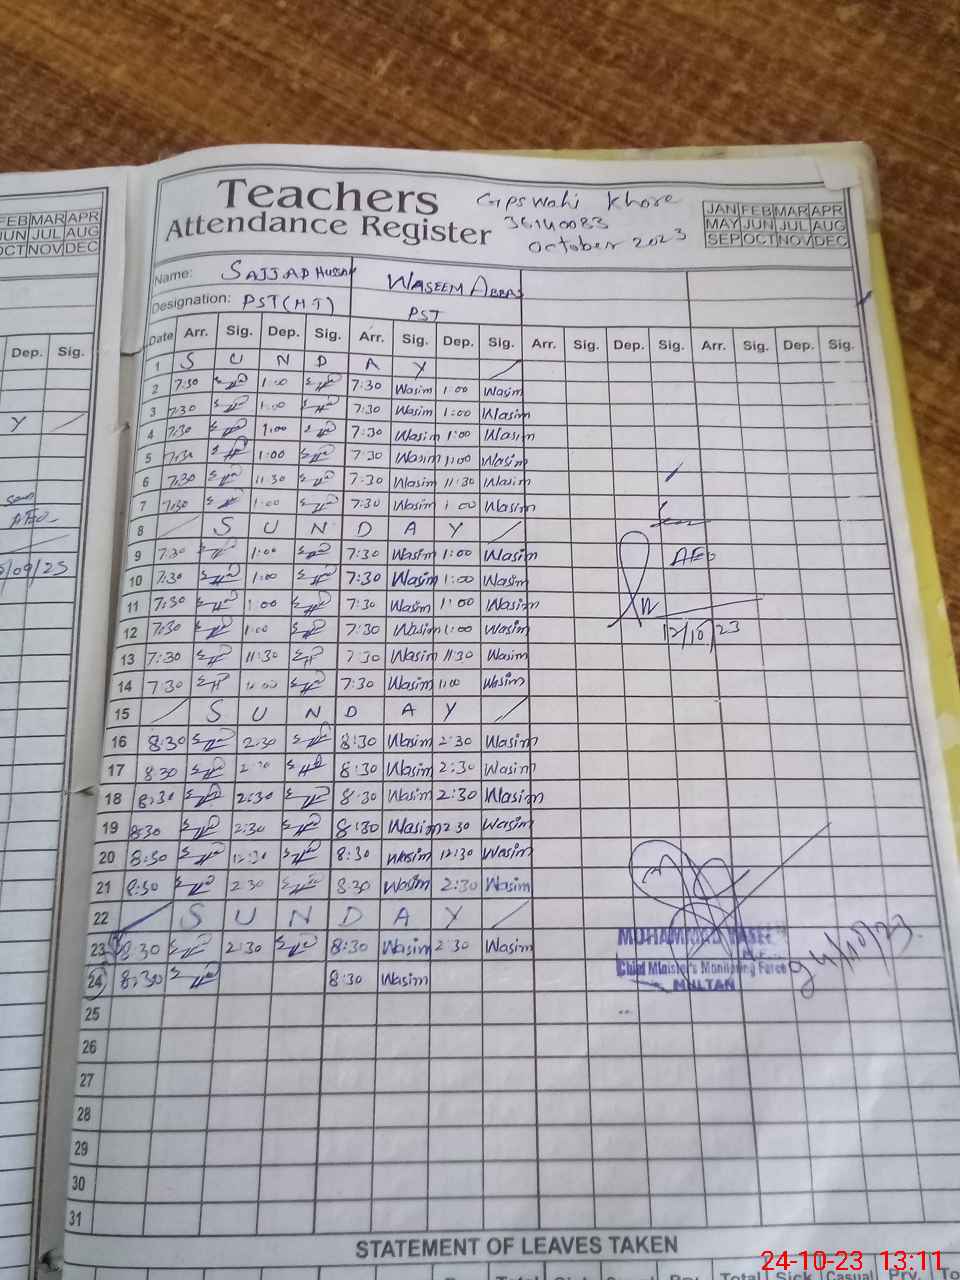 Teachers
Attendance Register
GPS Wahi Khore
36140083
October 2023
JAN FEB MAR APR
MAY JUN JUL AUG
SEP OCT NOV DEC
FEB MAR APR
JUN JUL AUG
OCT NOV DEC
Name: SAJJAD HUSSAIN WASEEM ABBAS
Designation: PST (HT) PST
Dep. Sig.
Date Arr. Sig. Dep. Sig. Arr. Sig. Dep. Sig. Arr. Sig. Dep. Sig. Arr. Sig. Dep. Sig.
1 S U N D A Y
2 7:30 1:00 7:30 Wasim 1:00 Wasim
3 7:30 1:00 7:30 Wasim 1:00 Wasim
Y
4 7:30 1:00 7:30 Wasim 1:00 Wasim
5 7:30 1:00 7:30 Wasim 1:00 Wasim
6 7:30 11:30 7:30 Wasim 11:30 Wasim
7 7:30 1:00 7:30 Wasim 1:00 Wasim
AEO
8 S U N D A Y
9 7:30 1:00 7:30 Wasim 1:00 Wasim
AEO
/09/23
10 7:30 1:00 7:30 Wasim 1:00 Wasim
11 7:30 1:00 7:30 Wasim 1:00 Wasim
12 7:30 1:00 7:30 Wasim 1:00 Wasim
12/10/23
13 7:30 11:30 7:30 Wasim 11:30 Wasim
14 7:30 1:00 7:30 Wasim 1:00 Wasim
15 S U N D A Y
16 8:30 2:30 8:30 Wasim 2:30 Wasim
17 8:30 2:30 8:30 Wasim 2:30 Wasim
18 8:30 2:30 8:30 Wasim 2:30 Wasim
19 8:30 2:30 8:30 Wasim 2:30 Wasim
20 8:30 12:30 8:30 Wasim 12:30 Wasim
21 8:30 2:30 8:30 Wasim 2:30 Wasim
22 S U N D A Y
23 8:30 2:30 8:30 Wasim 2:30 Wasim
MUHAMMAD
Chief Minister's Monitoring Force
MULTAN
24/10/23
24 8:30 8:30 Wasim
25
26
27
28
29
30
31
STATEMENT OF LEAVES TAKEN
Total Sick Casual Prv. To
24-10-23 13:11